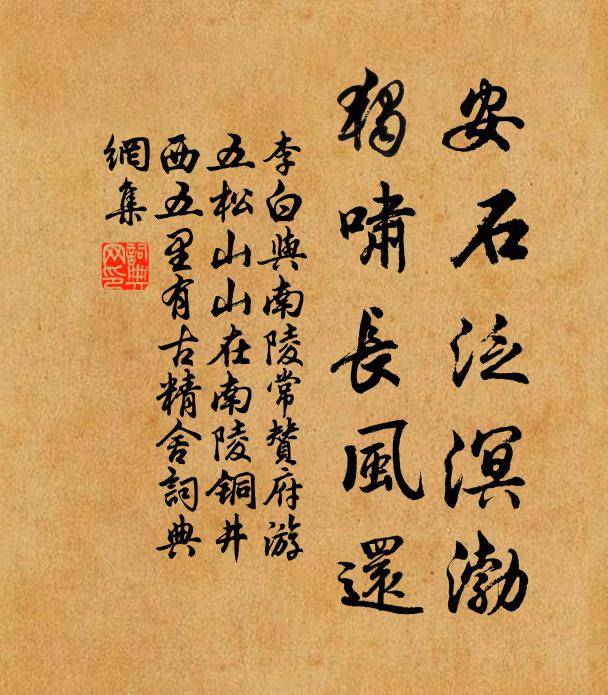 安石泛溟渤
獨嘯長風還
李白與南陵常贊府游
五松山山在南陵銅井
西五里有古精舍詞典
網集
詞典
网印